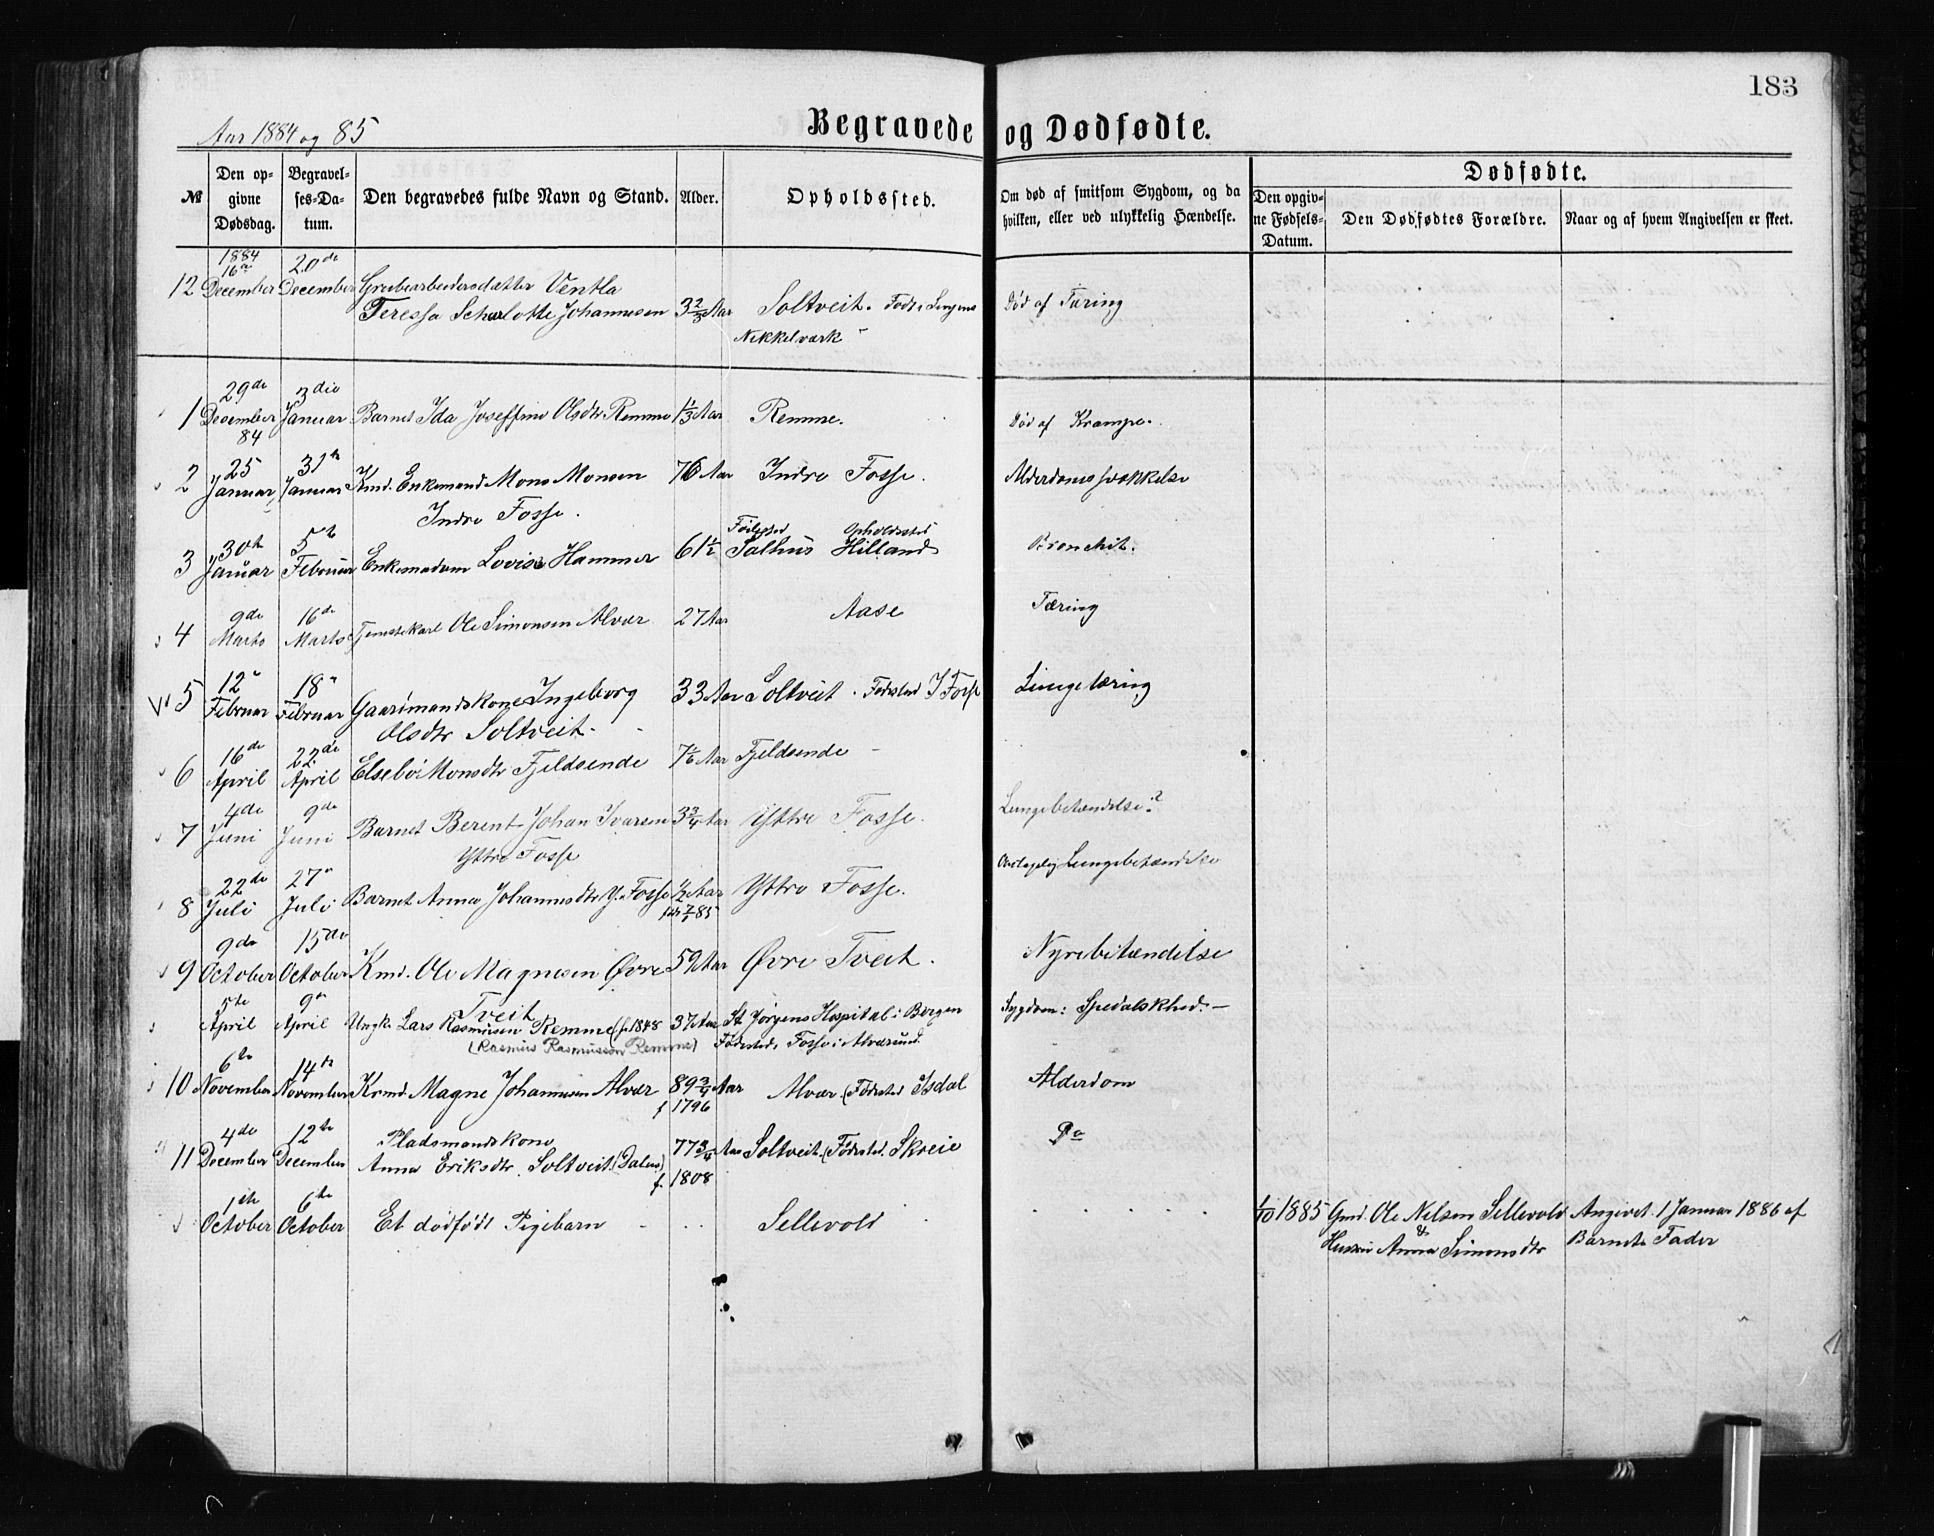 183
Aar 1884 og 85
Begravede og Dødfødte.
№
Den op-
givne
Dødsdag.
Begravel-
ses-Da-
tum.
Den begravedes fulde Navn og Stand.
Alder.
Opholdssted.
Om død af smitsom Sygdom, og da
hvilken, eller ved ulykkelig Hændelse.
Dødfødte.
Den opgiv-
ne Fødsels-
Datum.
Den Dødfødtes Forældre.
Naar og af hvem Angivelsen er skeet.
1884
16de 20de
12 December December Grubearbeidersdatter Ventla
Teresia Scharlotte Johannesen 3 2/3 Aar Soltveit. Født i
Nikkelværk
Død af Tæring
29de 3die
1 December Januar Barnet Ida Joseffine Olsdtr Remme 1/3 Aar Remme. Død af Krampe.
84
25 31te
2 Januar Januar Kmd. Enkemand Mons Monsen 76 Aar Indre Fosse. Alderdomssvækkelse
Indre Fosse.
30te 5te Fødested Opholdssted
3 Januar Februar Enkemadam Lovise Hammer 61 1/2 Salhus Hilland Bronchit.
9de 16de
4 Marts Marts Tjenestekarl Ole Simonsen Alvær 27 Aar Aase Tæring
12te 18te
5 Februar Februar Gaardmandskone Ingeborg 33 Aar Soltveit. Fødested I Fosse Lungetæring
Olsdtr Soltveit.
16de 22de
6 April April Elsebø Monsdtr Fjeldsende 7 1/6 Aar Fjeldsende
4de 9de
7 Juni Juni Barnet Berent Johan Ivarsen 3 3/4 Aar Yttre Fosse. Lungebetændelse?
Yttre Fosse
22de 27de
8 Juli Juli Barnet Anna Johannesdtr Y. Fosse 1/2 Aar Yttre Fosse. Lungebetændelse
9de 15de
9 October October Kmd. Ole Magnesen Øvre 59 Aar Øvre Tveit. Nyrebetændelse
Tveit
5te 9de
April April Ungk. Lars Rasmusen Remme (f. 1848 37 Aar St Jørgens Hospital i Bergen Sygdom: Spedalskhed.
(Rasmus Rasmussen Remme) Fødested, Fosse i Alværsund.
6te 14te
10 November November Kmd. Magne Johannesen Alvær 89 3/4 Aar Alvær (Fødested Isdal Alderdom
f 1796
4de 12te Pladsmandskone
11 December December Anna Eriksdtr. Soltveit (Dalen) 77 3/4 Aar Soltveit. (Fødested. Skreie Do
f. 1808
1ste 6te
October October Et dødfødt Pigebarn Sellevold 1/10 1885 Gmd. Ole Nilsen Sellevold Angivet 1 Januar 1886 af
& Hustru Anna Simonsdtr Barnets Fader